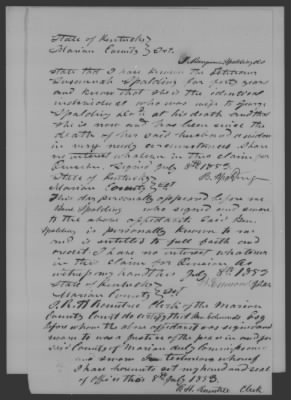 State of Kentucky }
Marion County } Sct.
I Benjamin Spalding do
state that I have known the Petitioner
Susannah Spalding for forty years
and know that she is the identical
individual who was wife to George
Spalding decd at his death and that
she is now and has been since the
death of her said husband a widow
in very needy circumstances I have
no interest whatever in this claim for
Pension Signed July 8th 1853
State of Kentucky } B. Spalding
Marion County } Sct
This day personally appeared before me
Ben Spalding who signed and swore
to the above affidavit Said Ben
Spalding is personally known to me
and is entitled to full faith and
credit I have no interest whatever
in this claim for Pension
witness my hand this July 8th 1853
State of Kentucky }
Marion County } Sct
Clerk of the Marion
County Court do certify that Ben Edmonds Esq
before whom the above affidavit was signed and
sworn to was a Justice of the peace in and for
said County of Marion duly Commissioned
and sworn In testimony whereof
I have hereunto set my hand and seal
of office this 8th July 1853
Clerk